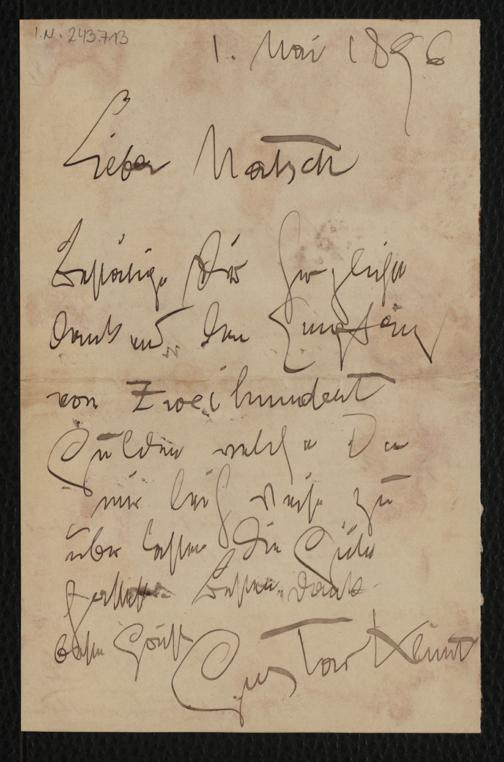 I.N. 243.713
1. Mai 1896
Lieber Matsch
Bestätige Dir herzlichst
dankend den Empfang
von Zweihundert
Gulden welche Du
mir leihweise zu
überlassen die Güte
hattest. Besten Dank
besten Gruß
Gustav Klimt